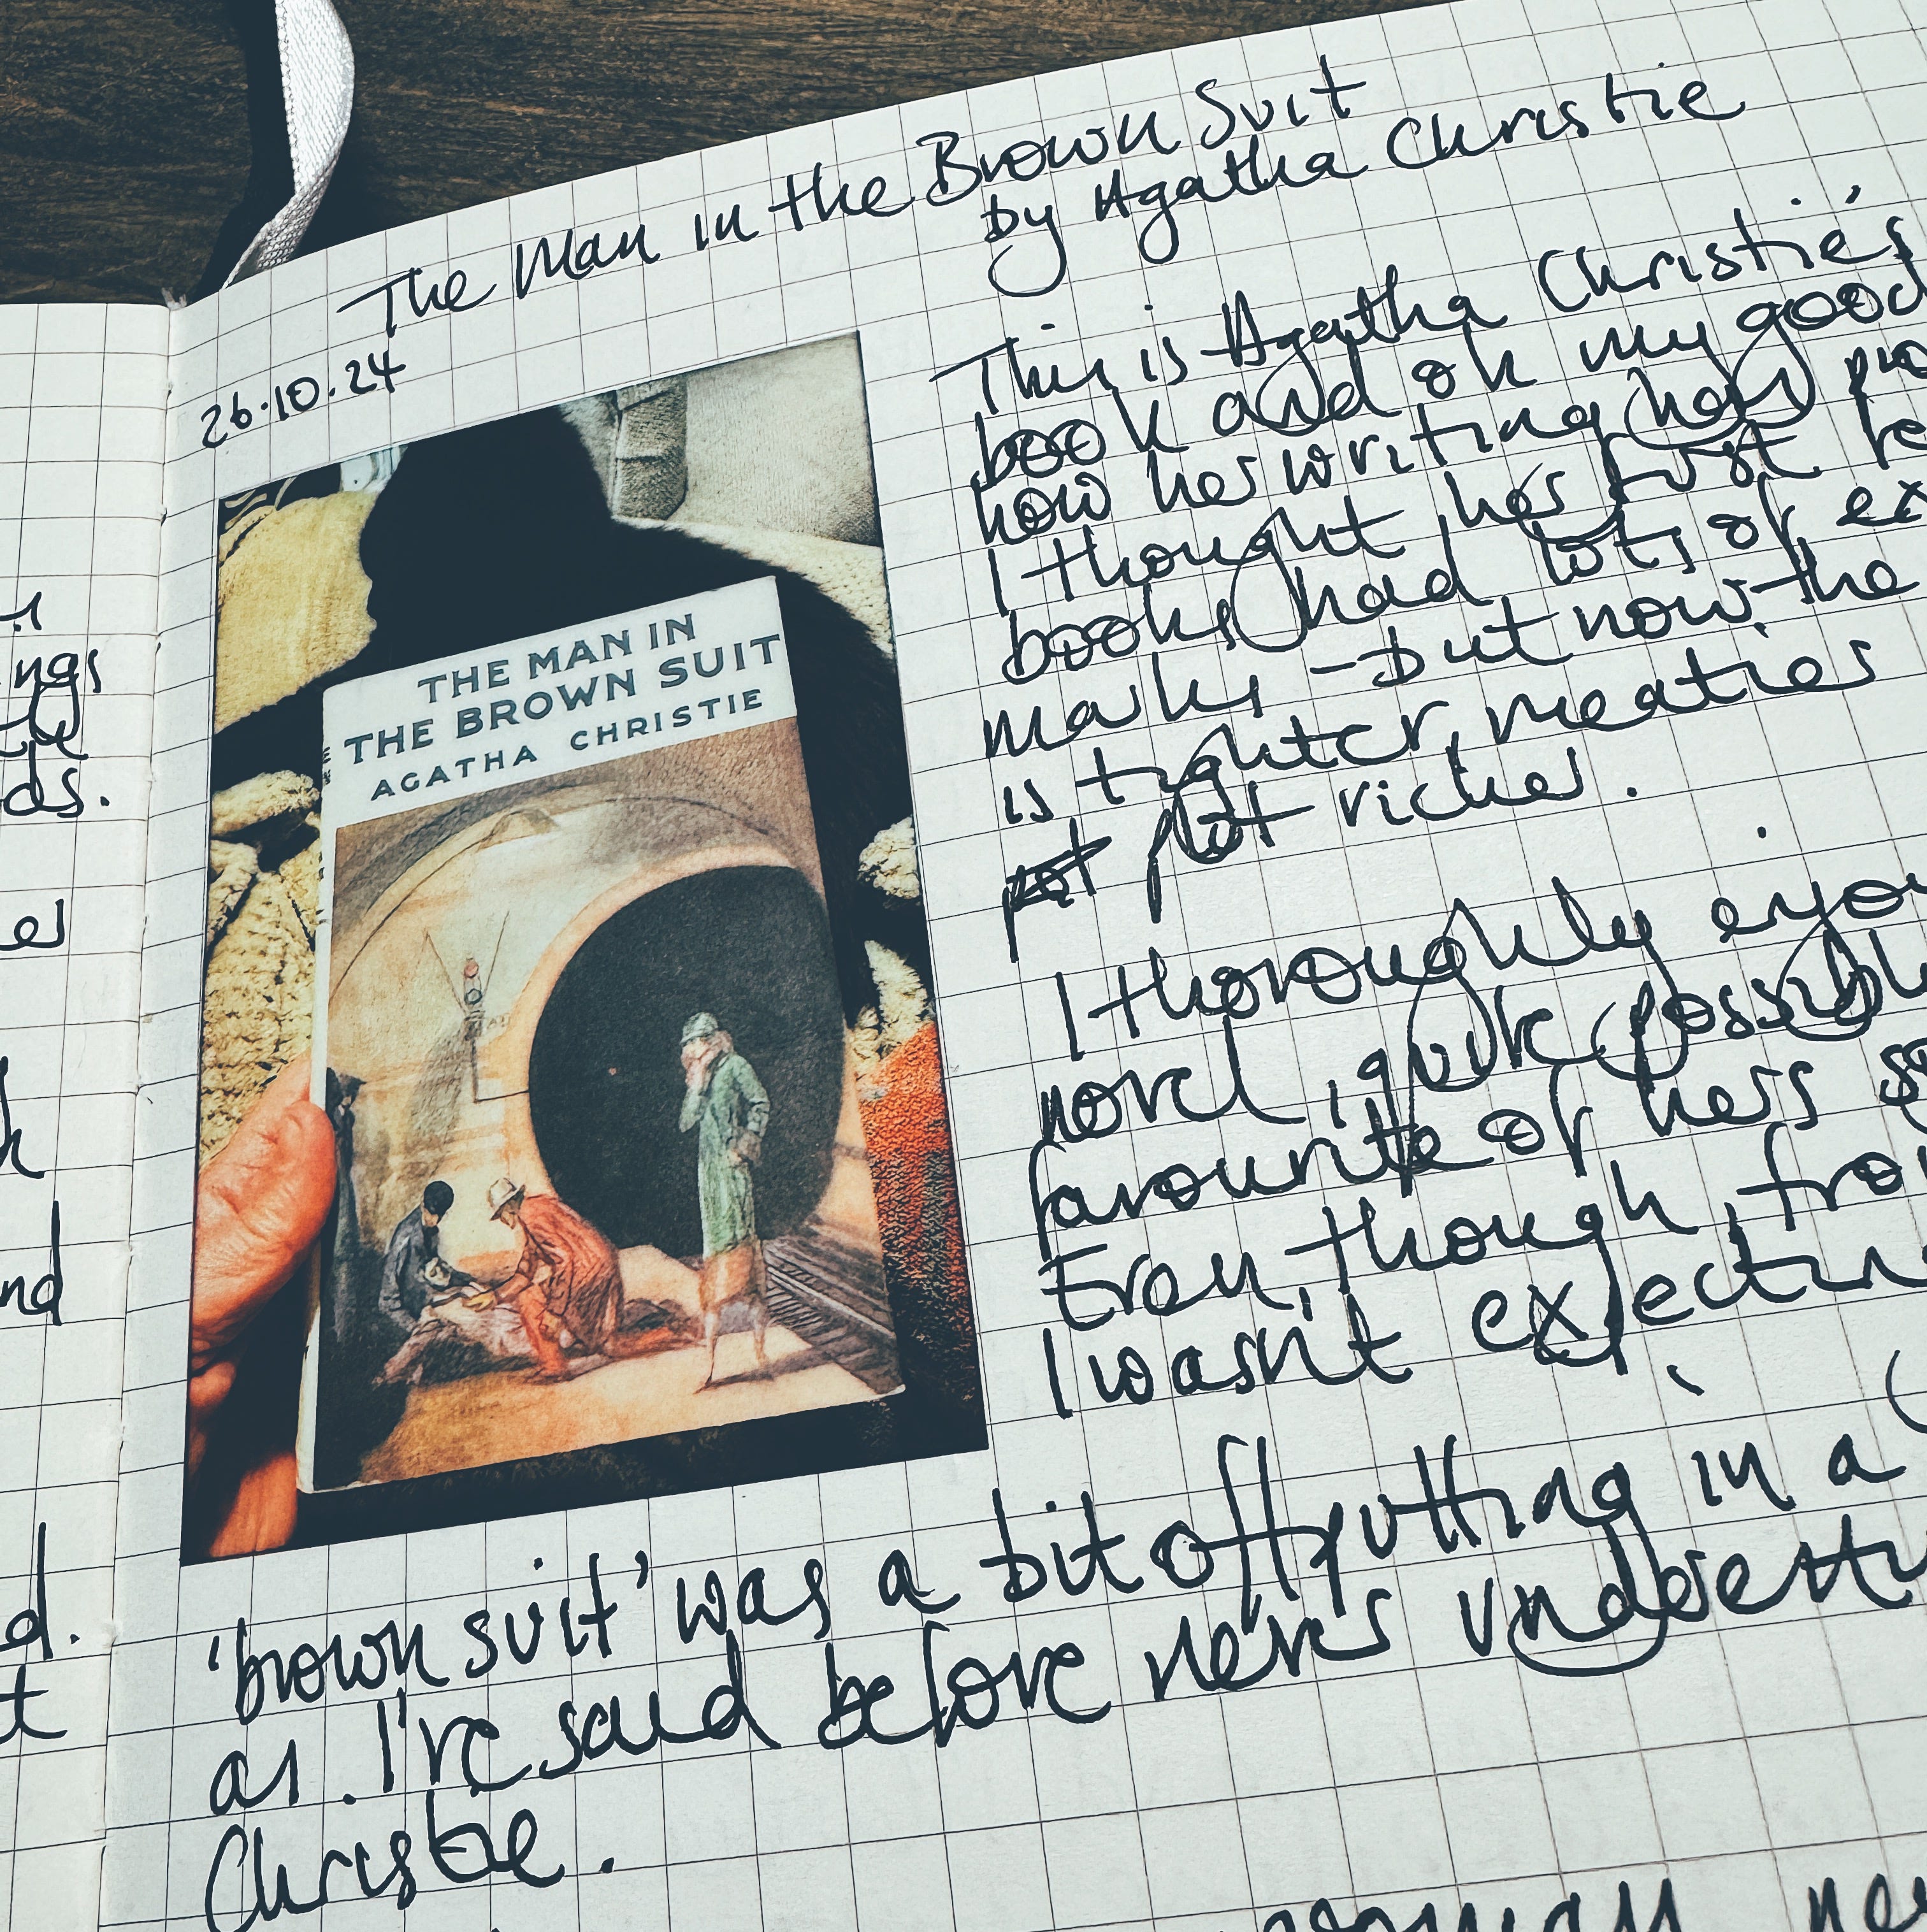 ings
ds.
nd
d.
t
The Man in the Brown Suit
by Agatha Christie
26.10.24
THE MAN IN
THE BROWN SUIT
AGATHA CHRISTIE
This is Agatha Christie's
book and oh my good
how her writing has
I thought her first
books had lots of ex
marks - but now the
is tighter, meatier
plot richer.
I thoroughly enjo
novel, quite possibl
favourite of hers so
Even, though, fro
I wasn't expectin
'brown suit' was a bit offputting in a
as I've said before never undoesti
Christie.